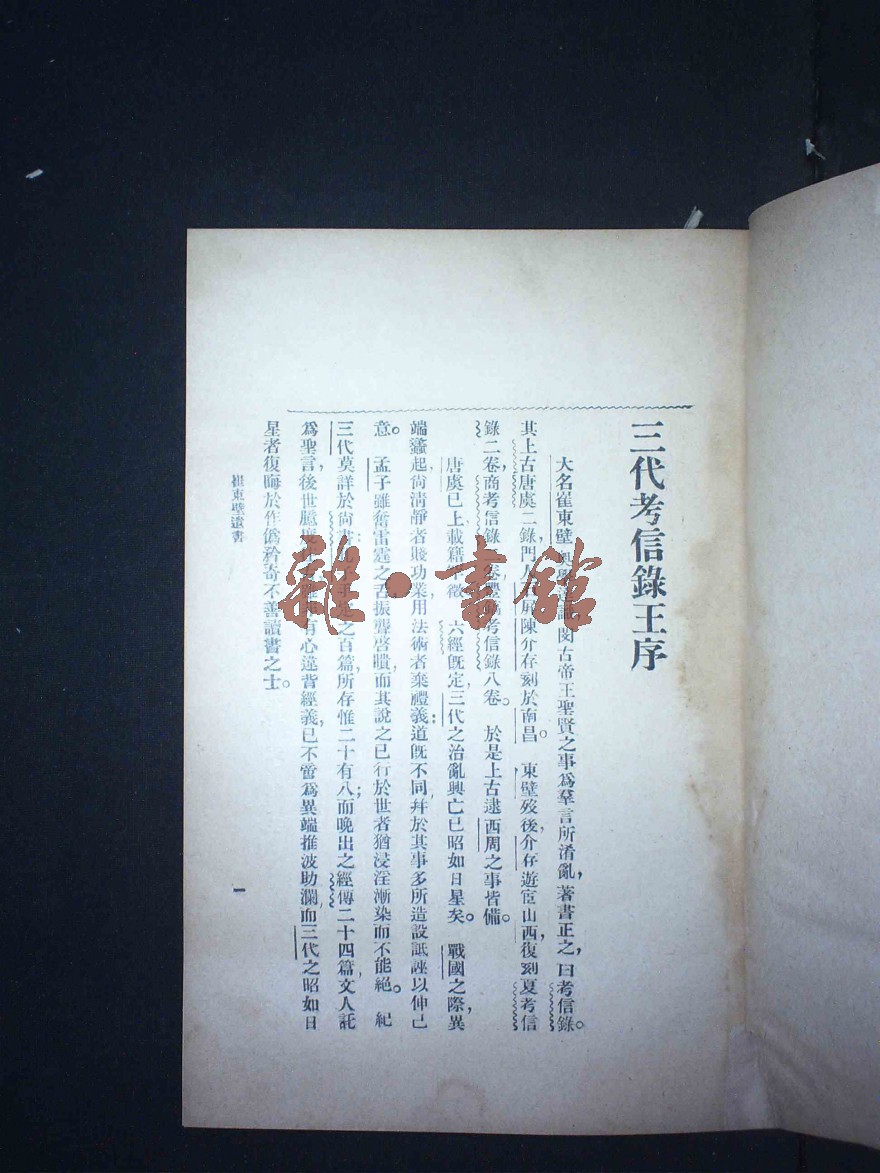 三代考信錄王序
大名崔東壁 閔古帝王聖賢之事爲羣言所淆亂，著書正之，曰考信錄。
其上古唐虞二錄，門人 屏陳介存刻於南昌。東壁歿後，介存遊宦山西，復刻夏考信
錄二卷，商考信錄 卷，豐鎬考信錄八卷。於是上古逮西周之事皆備。
唐虞已上，載籍 徵 六經旣定，三代之治亂興亡已昭如日星矣。戰國之際，異
端蠭起，尙淸靜者賤功業，用法術者棄禮義；道旣不同，幷於其事多所造設詆誣以伸己
意。孟子雖奮雷霆之舌，振聾啓聵，而其說之已行於世者猶浸淫漸染而不能絕。紀
三代莫詳於尙書； 之百篇，所存惟二十有八；而晚出之經傳二十四篇，文人託
爲聖言，後世臆度 有心違背經義，已不啻爲異端推波助瀾，而三代之昭如日
星者復晦於作僞矜奇不善讀書之士。
崔東壁遺書
一
雜·書館